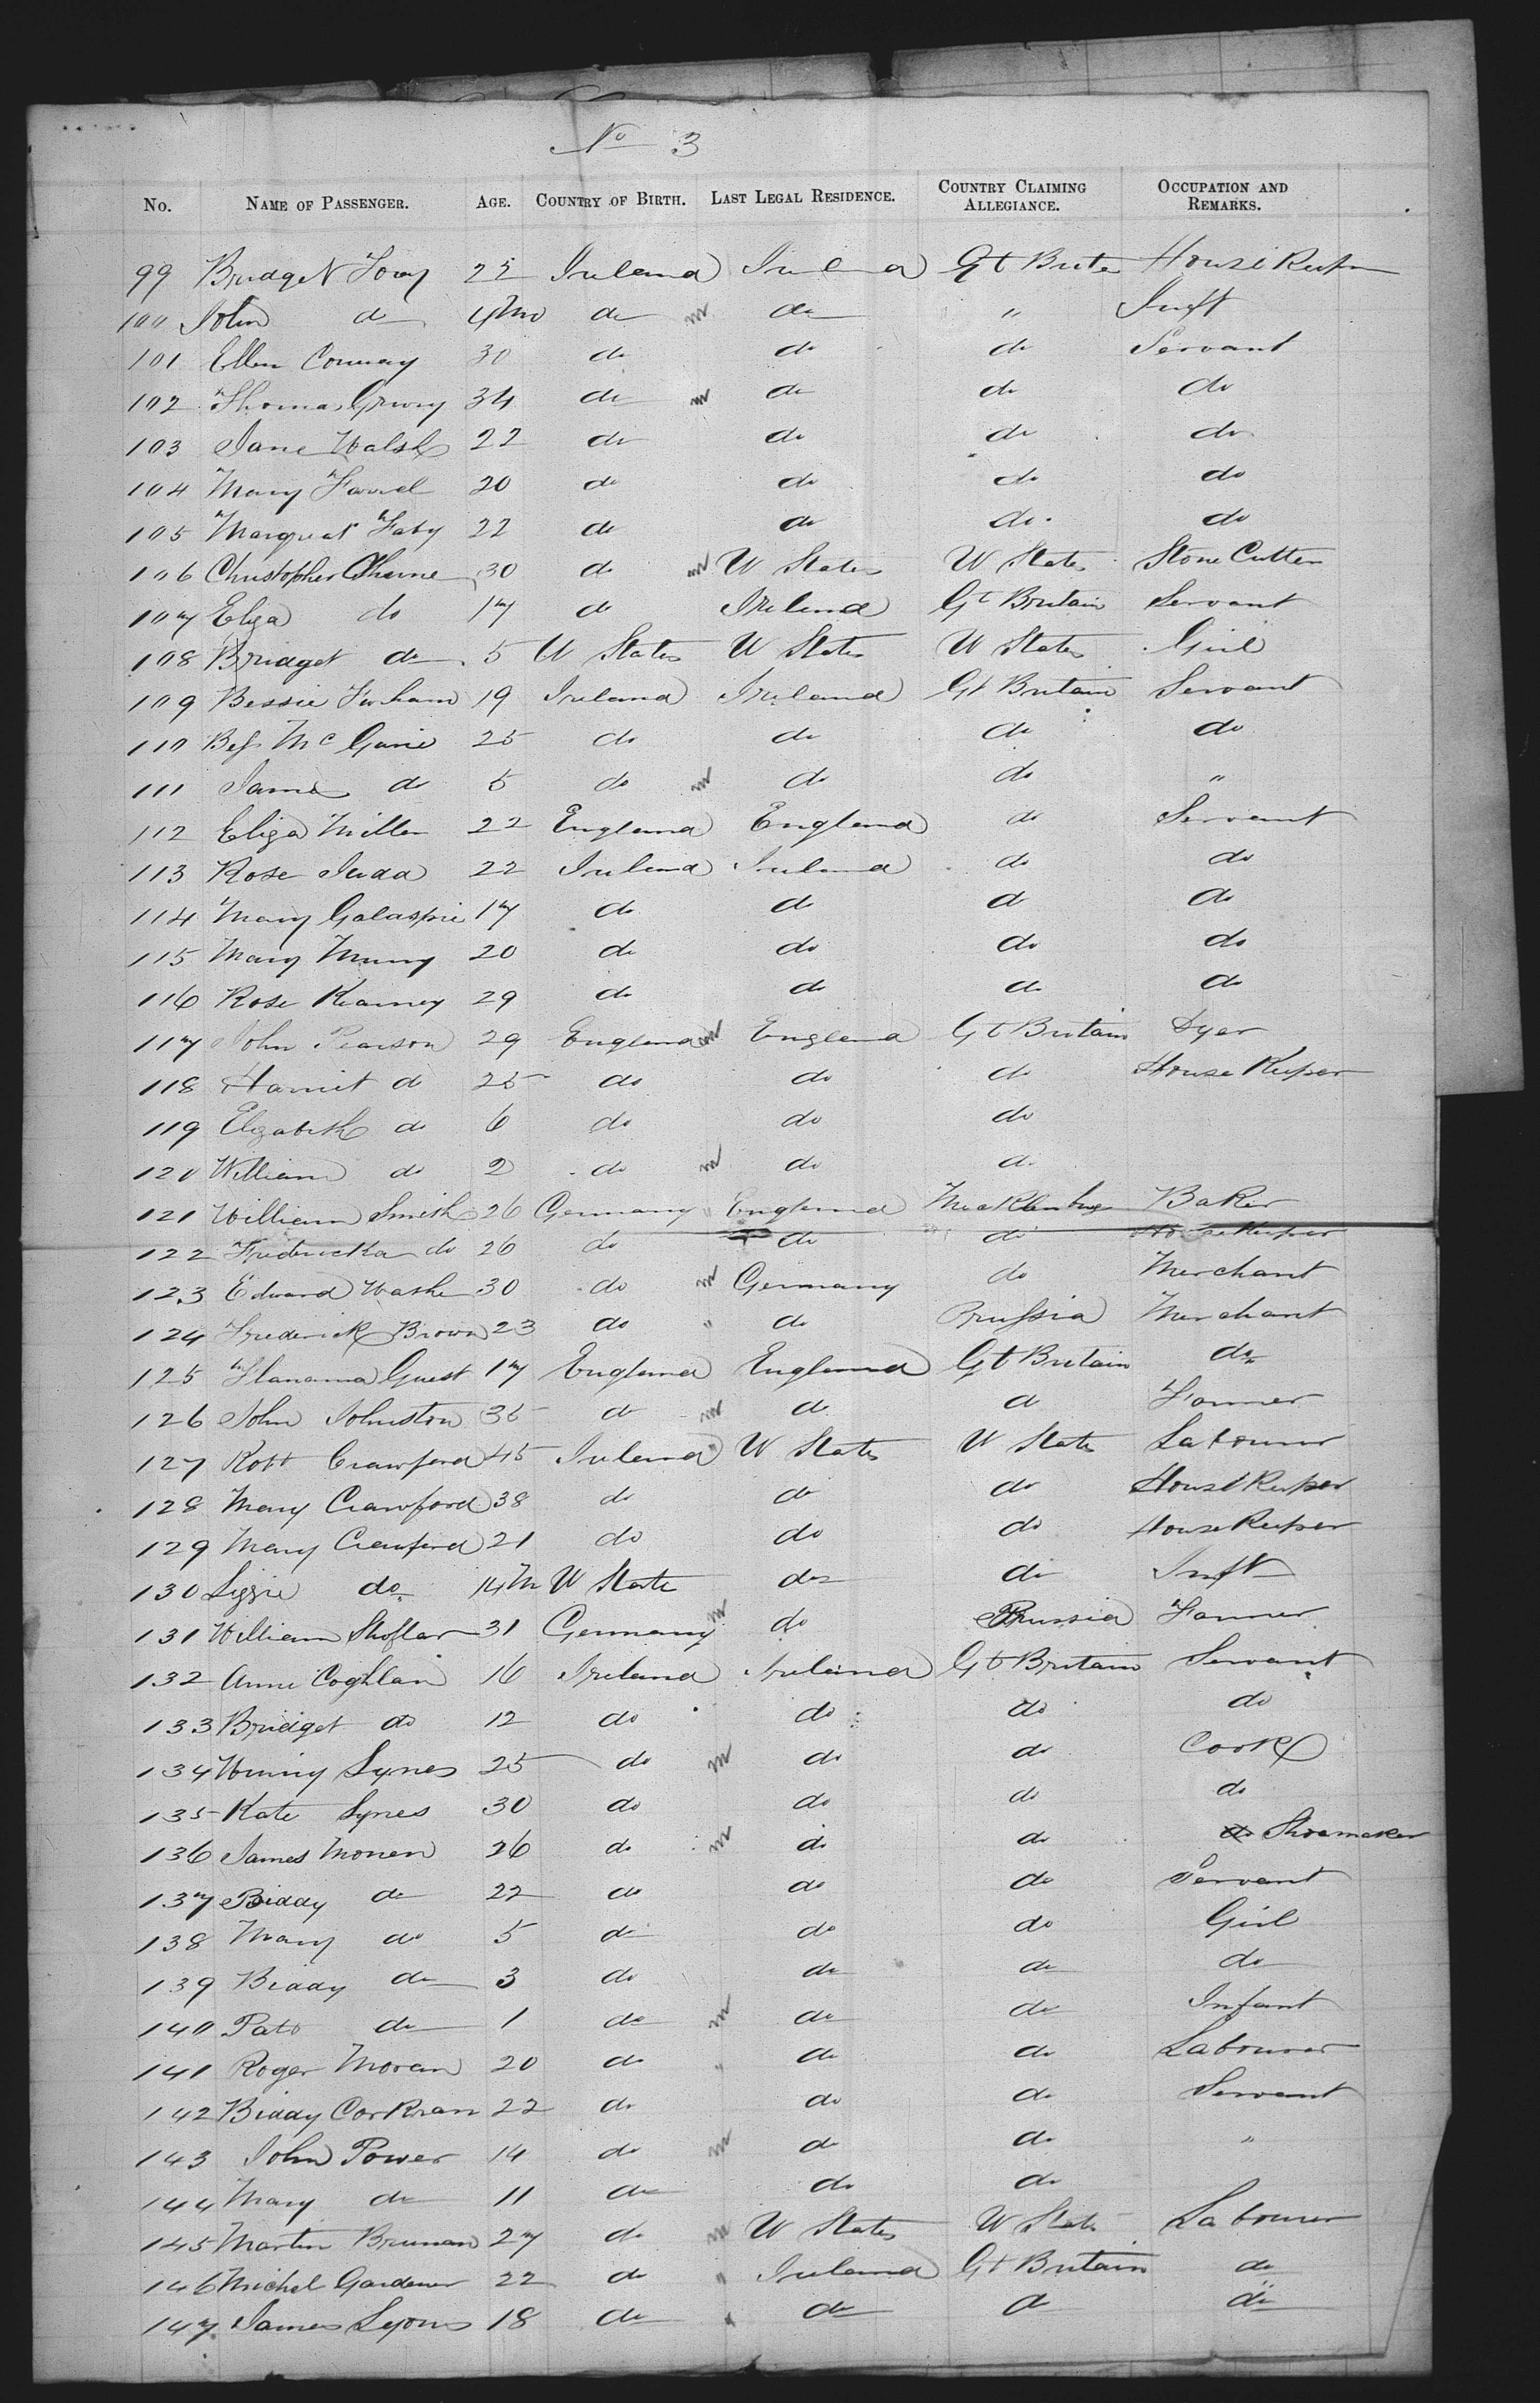 No 3
No. NAME OF PASSENGER. AGE. COUNTRY OF BIRTH. LAST LEGAL RESIDENCE. COUNTRY CLAIMING ALLEGIANCE. OCCUPATION AND REMARKS.
99 Bridget 25 Ireland Ireland Gt Brita House Keeper
100 John do 4 Mo do m do " Inft
101 Ellen Conway 30 do do do Servant
102 Thomas 34 do m do do do
103 Jane Walsh 22 do do do do
104 Mary Farrel 20 do do do do
105 Margreat Fahy 22 do do do do
106 Christopher 30 do m U States U States Stone Cutter
107 Eliza do 17 do Ireland Gt Britain Servant
108 Bridget do 5 U States U States U States Girl
109 Bessie 19 Ireland Ireland Gt Britain Servant
110 Bess Mc Garie 25 do do do do
111 James do 5 do m do do "
112 Eliza Miller 22 England England do Servant
113 Rose Judd 22 Ireland Ireland do do
114 Mary Galaspie 17 do do do do
115 Mary 20 do do do do
116 Rose Kearney 29 do do do do
117 John Pearson 29 England m England Gt Britain Dyer
118 Harriet do 25 do do do House Keeper
119 Elizabeth do 6 do do do
120 William do 2 do m do do
121 William Smith 26 Germany " England Mecklenburg Baker
122 Fredericka do 26 do do do House Keeper
123 Edward Washe 30 do m Germany do Merchant
124 Frederick Brown 23 do " do Prussia Merchant
125 Guest 17 England England Gt Britain do
126 John Johnston 35 do m do do Farmer
127 Robt Crawford 45 Ireland " U States U State Labourer
128 Mary Crawford 38 do do do House Keeper
129 Mary Crawford 21 do do do House Keeper
130 Lizzie do 14 M U State do do Inft
131 William Shoflar 31 Germany m do Prussia Farmer
132 Anne Coghlan 16 Ireland Ireland Gt Britain Servant
133 Bridget do 12 do do do do
134 Winny Lynes 25 do m do do Cook
135 Kate Lynes 30 do do do do
136 James Monen 26 do m do do do Shoemaker
137 Biddy do 22 do do do Servant
138 Mary do 5 do do do Girl
139 Biddy do 3 do do do do
140 Patt do 1 do m do do Infant
141 Roger Moran 20 do " do do Labourer
142 Biddy Corkran 22 do do do Servant
143 John Power 14 do m do do "
144 Mary do 11 do do do
145 Martin Brunan 27 do m U States U State Labourer
146 Michel Gardener 22 do " Ireland Gt Britain do
147 James Lyons 18 do " do do do